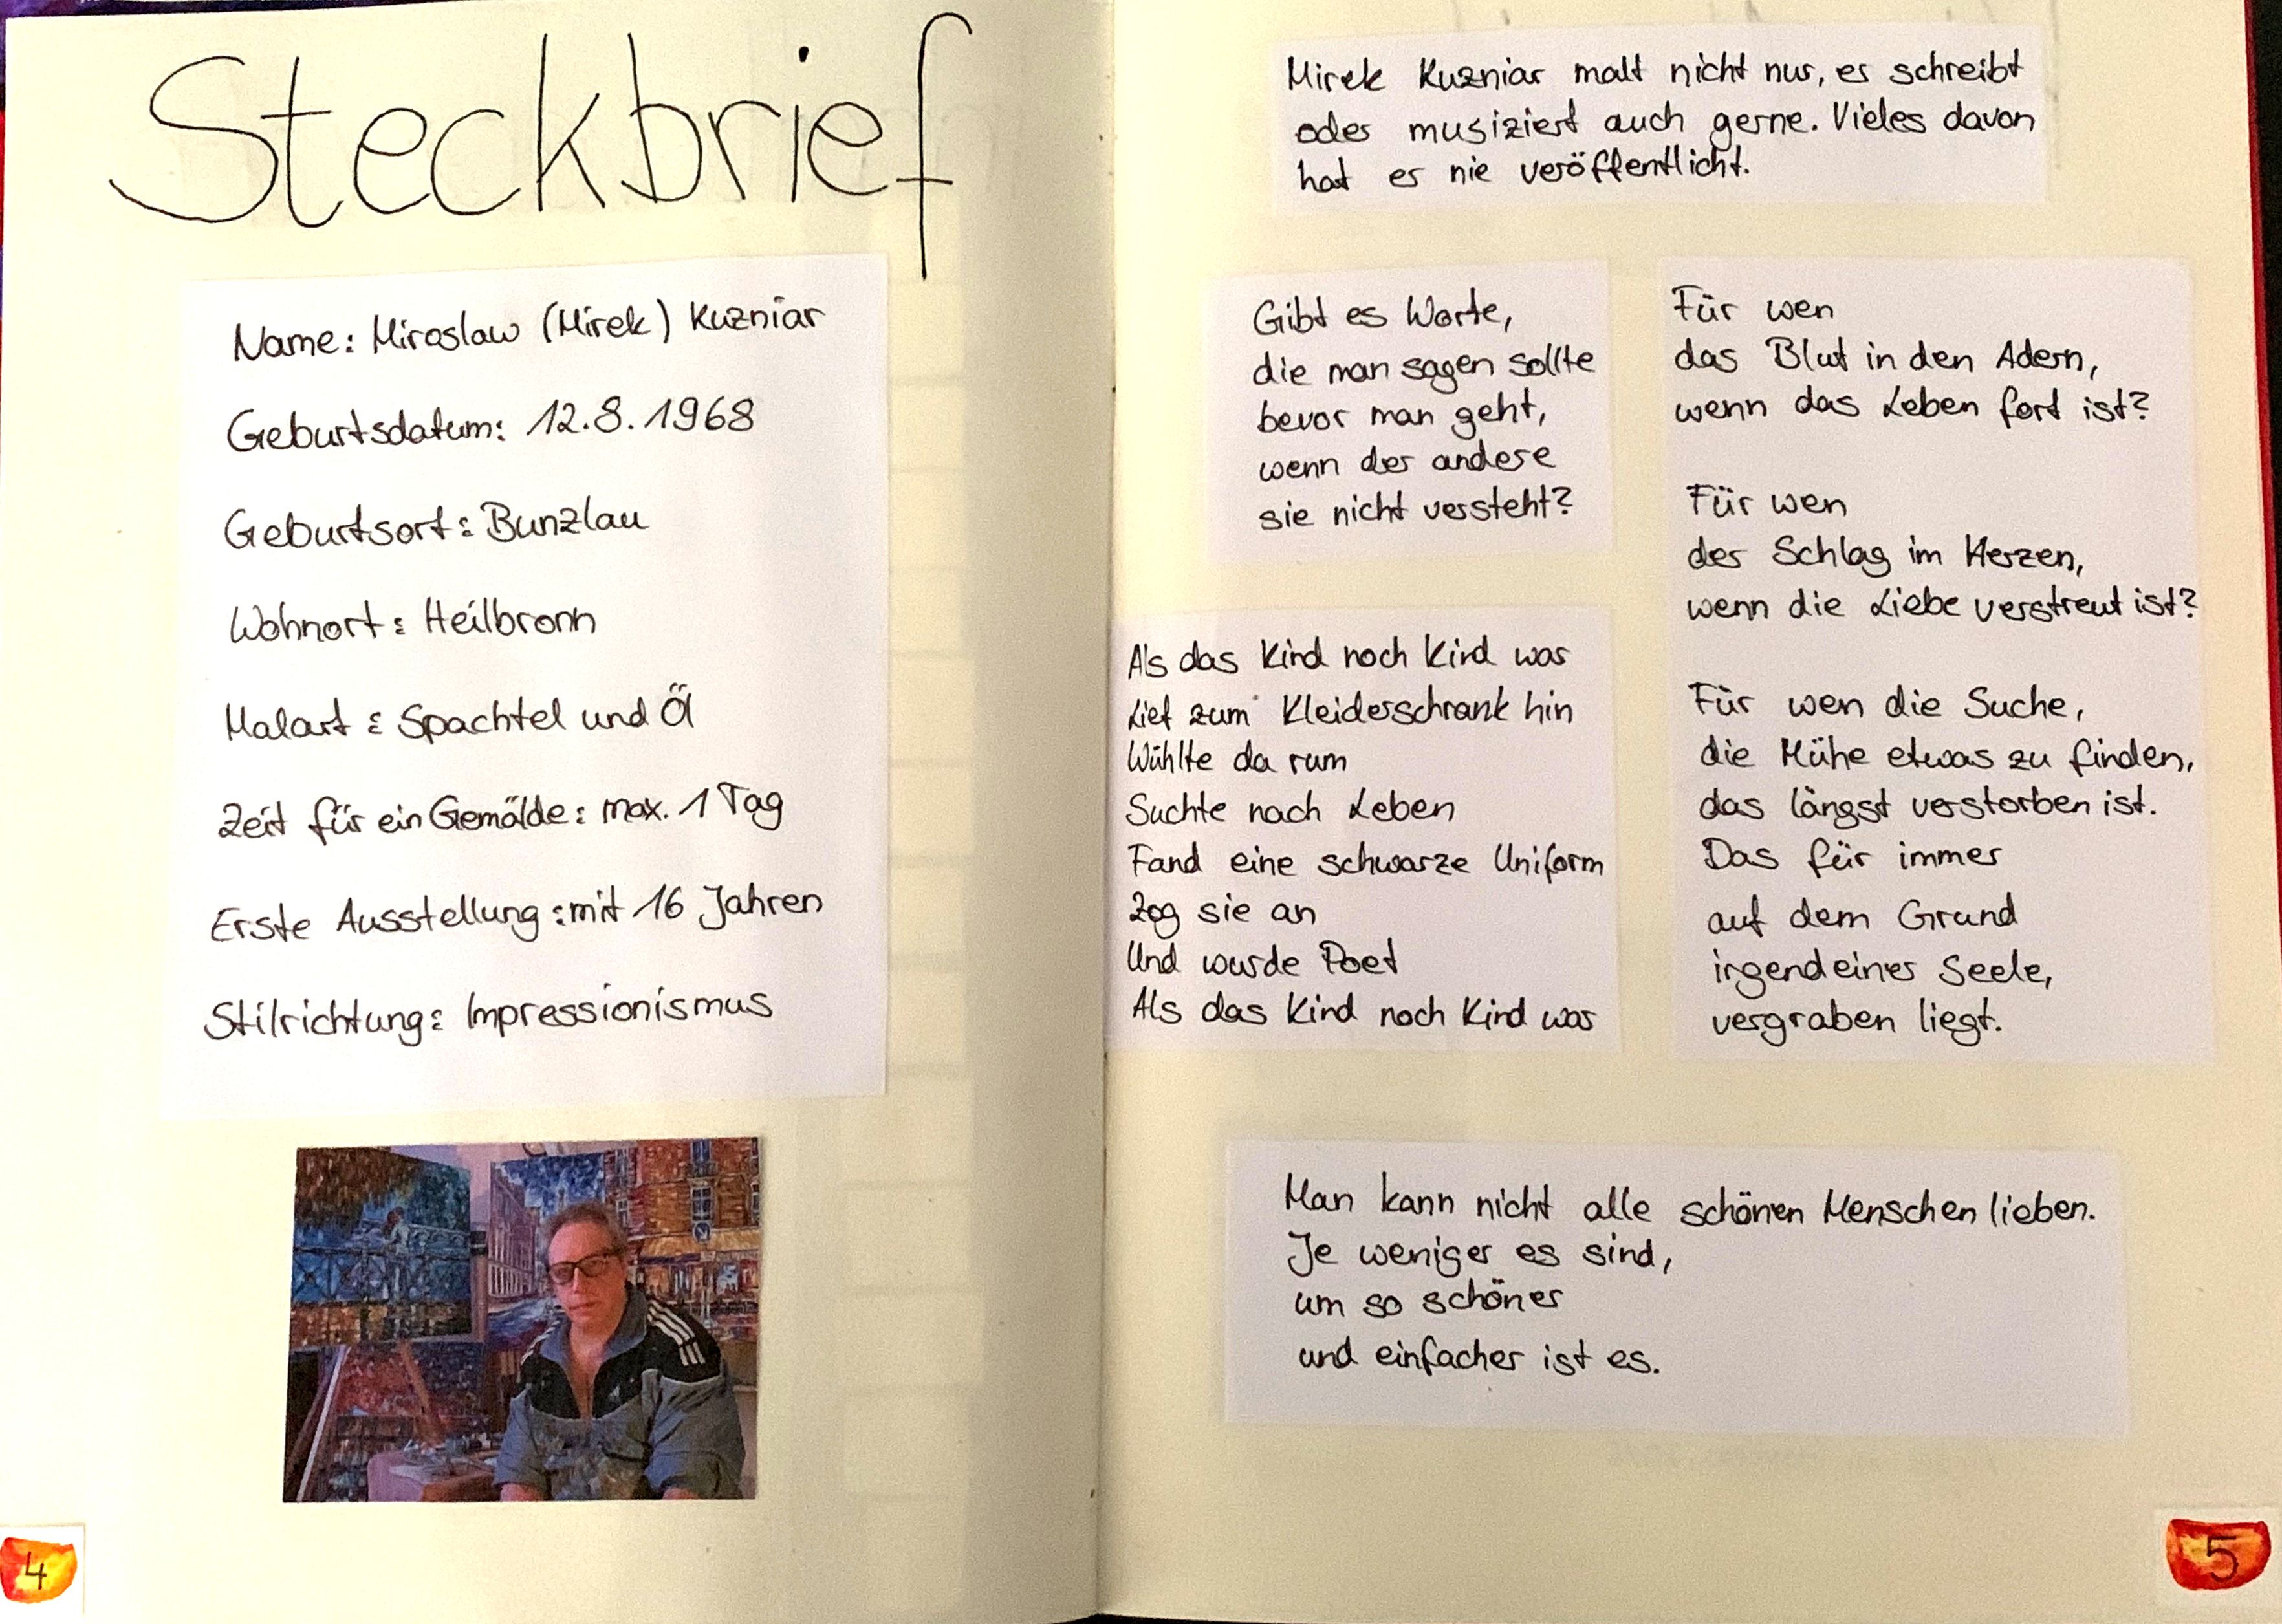 Steckbrief
Name: Miroslaw (Mirek) Kuzniar
Geburtsdatum: 12.8.1968
Geburtsort: Bunzlau
Wohnort: Heilbronn
Malart: Spachtel und Öl
Zeit für ein Gemälde: max. 1 Tag
Erste Ausstellung: mit 16 Jahren
Stilrichtung: Impressionismus
4
Mirek Kuzniar malt nicht nur, er schreibt
oder musiziert auch gerne. Vieles davon
hat er nie veröffentlicht.
Gibt es Worte,
die man sagen sollte
bevor man geht,
wenn der andere
sie nicht versteht?
Als das Kind noch Kind war
Lief zum Kleiderschrank hin
Wühlte da rum
Suchte nach Leben
Fand eine schwarze Uniform
Zog sie an
Und wurde Poet
Als das Kind noch Kind war
Für wen
das Blut in den Adern,
wenn das Leben fort ist?
Für wen
der Schlag im Herzen,
wenn die Liebe verstreut ist?
Für wen die Suche,
die Mühe etwas zu finden,
das längst verstorben ist.
Das für immer
auf dem Grund
irgendeiner Seele,
vergraben liegt.
Man kann nicht alle schönen Menschen lieben.
Je weniger es sind,
um so schöner
und einfacher ist es.
5